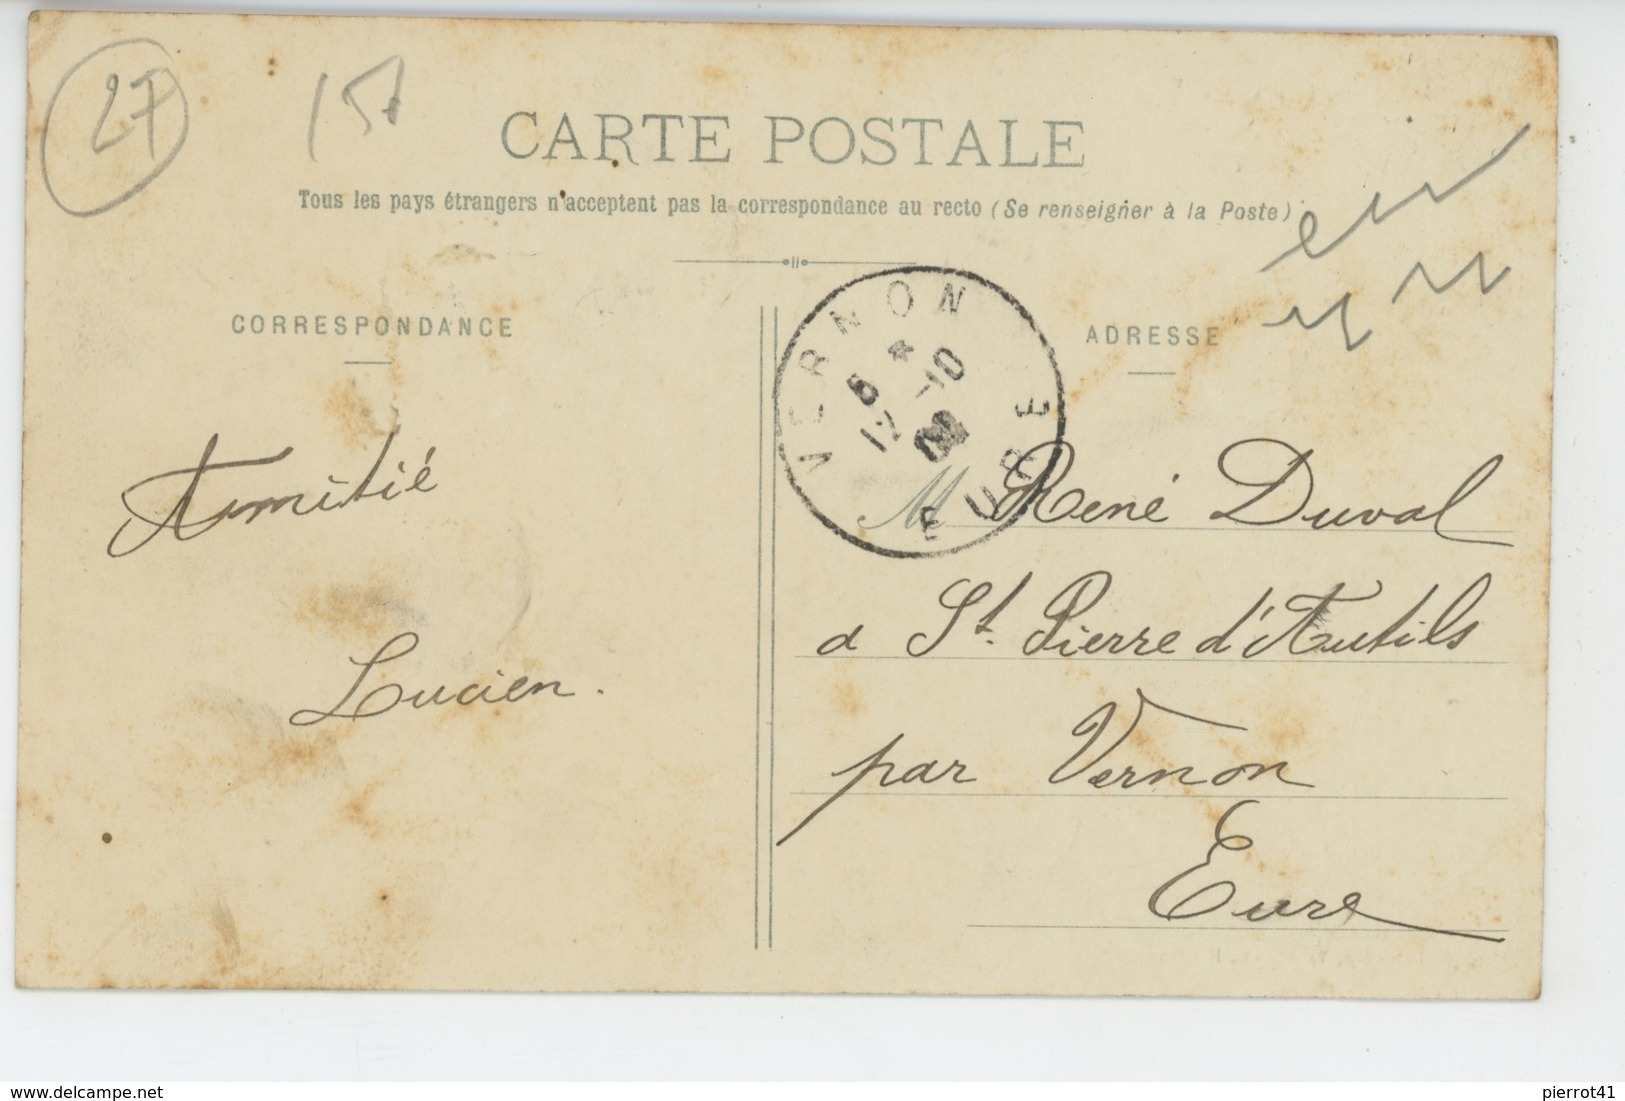 27
CARTE POSTALE
Tous les pays étrangers n'acceptent pas la correspondance au recto (Se renseigner à la Poste)
CORRESPONDANCE
Amitié
Lucien.
VERNON
EURE
ADRESSE
M René Duval
a St. Pierre d'Autils
par Vernon
Eure
www.delcampe.net
pierrot41